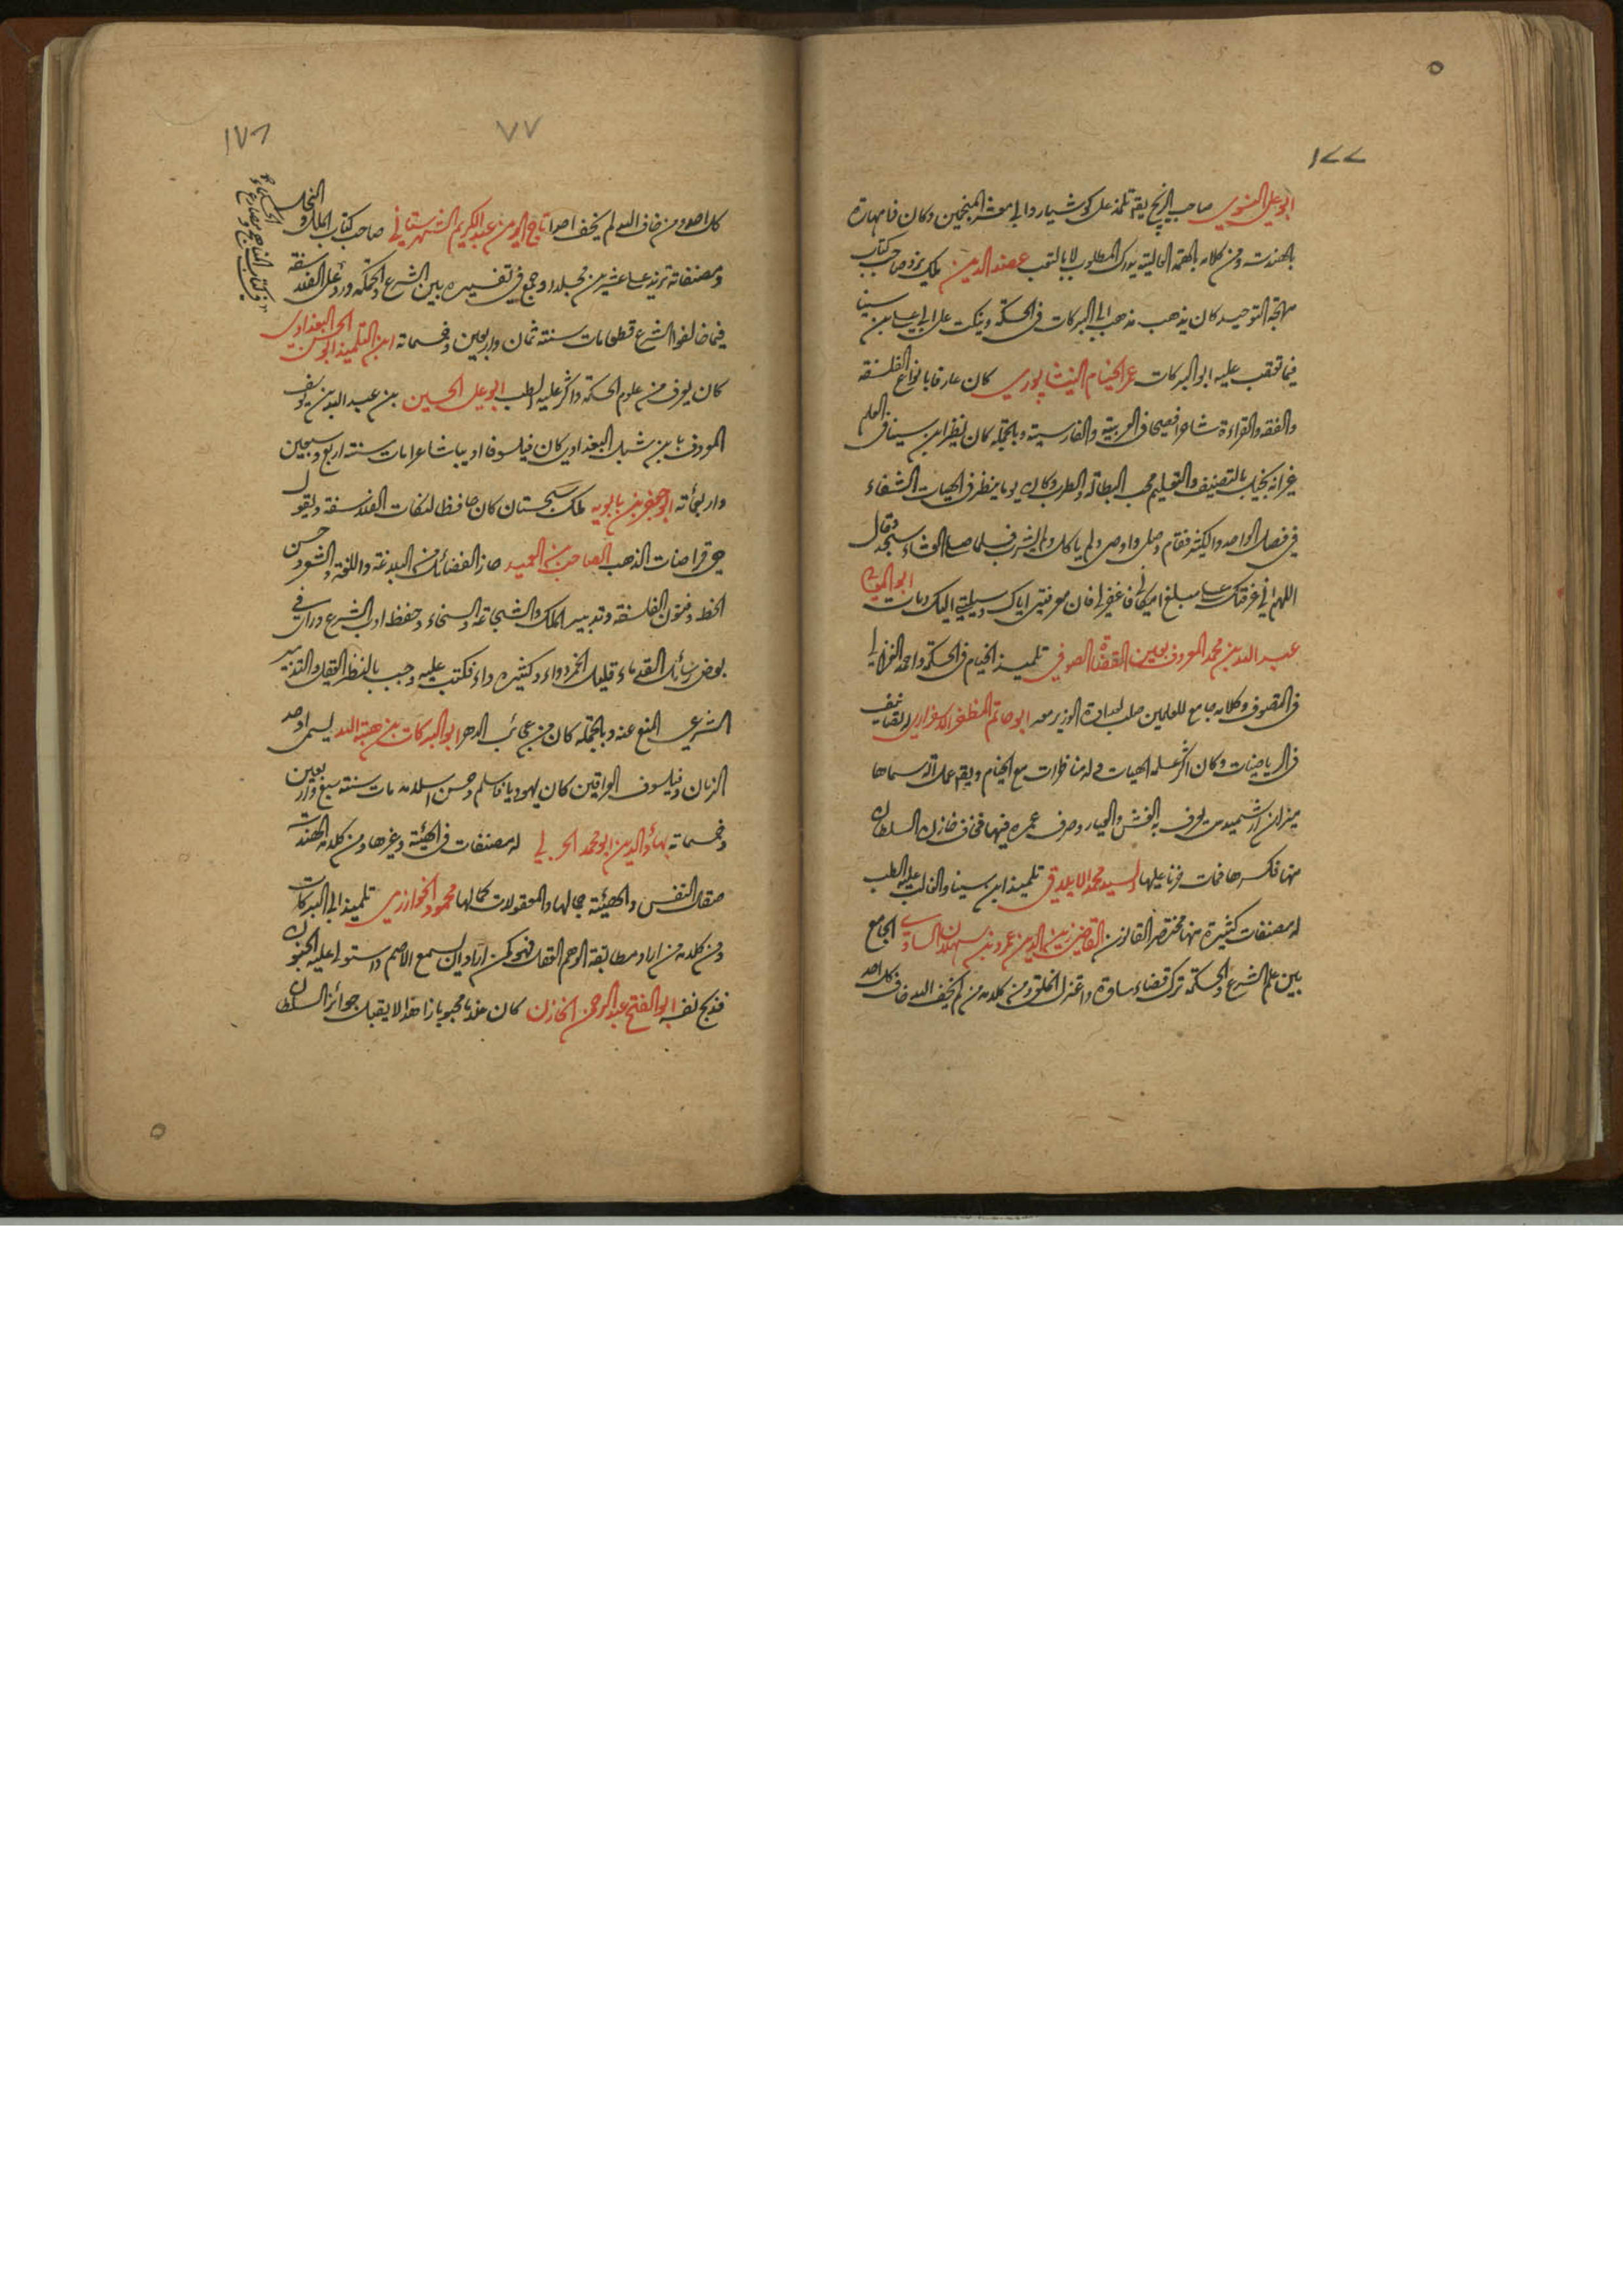 ١٧٧
ابو علي النسوي صاحب الزيج يقه تلمذ على كوشيار وابي معشر المنجمين وكان فا مهارة
بالهندسة ومن كلامه بالهمة العالية يدرك المطلوب لا بالتعب عضد الدين ملك يزد صاحب كتاب
مهجة التوحيد كان يذهب مذهب ابي البركات في الحكمة وينكت على ابي علي بن سينا
فيما تعقب عليه ابو البركات عمر الخيام النيشاپوري كان عارفا بانواع الفلسفة
والفقه والقراءة شاعرا فصيحا في العربية والفارسية وبالجملة كان نظير ابن سينا في العلم
غير انه بخيل بالتصنيف والتعليم محب البطالة والطرب وكان يوما ينظر في الهيات الشفاء
في فصل الواحد والكثير فقام وصلى واوصى ولم ياكل ولم يشرب فلما صلى العشاء سجد وقال
اللهم اني عرفتك على مبلغ امكاني فاغفر لي فان معرفتي اياك وسيلتي اليك ومات ابو المعالي
عبد الله بن محمد المعروف بعين القضاة الصوفي تلميذ الخيام في الحكمة واحمد الغزالي
في التصوف وكلامه جامع للعلمين صلب لعداوة الوزير معه ابو حاتم المظفر الاسفزاري له تصانيف
في الرياضيات وكان اكثر علمه الهيات وله مناظرات مع الخيام ويقه عمل آلة سماها
ميزان ارشميدس يعرف به الغش والعيار وصرف عمره فيها فخاف خازن السلطان
منها فكسرها فمات حزنا عليها السيد محمد الايلاقي تلميذ ابن سينا والغالب عليه الطب
له مصنفات كثيرة منها مختصر القانون القاضي زين الدين عمرو بن سهلان الساوي الجامع
بين علم الشرع والحكمة ترك قضاء ساوة واعتزل الخلق ومن كلامه من لم يخف الله خاف كل احد
٧٧
١٧٦
كل احد ومن خاف الله لم يخف احدا تاج الدين عبد الكريم الشهرستاني صاحب كتاب الملل و النحل
وكتاب المناهج ومصارع الحكماء
ومصنفاته تزيد على عشرين مجلدا وجمع في تفسيره بين الشرع والحكمة ورد على الفلاسفة
فيما خالفوا الشرع قطعا مات سنة ثمان واربعين وخمسمائة ابن التلميذ ابو الحسن البغدادي
كان يعرف من علوم الحكمة واكثر علمه الطب ابو علي الحسين بن عبد الله بن يوسف
المعروف بابن شبل البغدادي كان فيلسوفا اديبا شاعرا مات سنة اربع وسبعين
واربعمائة ابو جعفر بن بابويه ملك سجستان كان حافظا لنكات الفلاسفة ويقول
هي قراضات الذهب الصاحب بن العميد حاز الفضائل من البلاغة واللغة والشعر وحسن
الخط وفنون الفلسفة وتدبير الملك والشجاعة والسخاء وحفظ ادب الشرع وراى في
بعض رسائل القدماء قليل الخمر دواء وكثيره داء فكتب عليه وجب بالنظر العقلي والتدبير
الشرعي المنع عنه وبالجملة كان من عجائب الدهر ابو البركات بن هبة الله يسمى اوحد
الزمان وفيلسوف العراقين كان يهوديا فاسلم وحسن اسلامه مات سنة سبع واربعين
وخمسمائة بهاؤ الدين ابو محمد الخرقي له مصنفات في الهيئة وغيرها ومن كلامه الهندسة
صقال النفس والهيئة جمالها والمعقولات كمالها محمود الخوارزمي تلميذ ابي البركات
ومن كلامه من اراد مطابقة الوهم العقل فهو كمن اراد ان يسمع الاصم واستولى عليه الجنون
فذبح نفسه ابو الفتح عبد الرحمن الخازن كان هذا محبوبا زاهدا لا يقبل جوائز السلطان